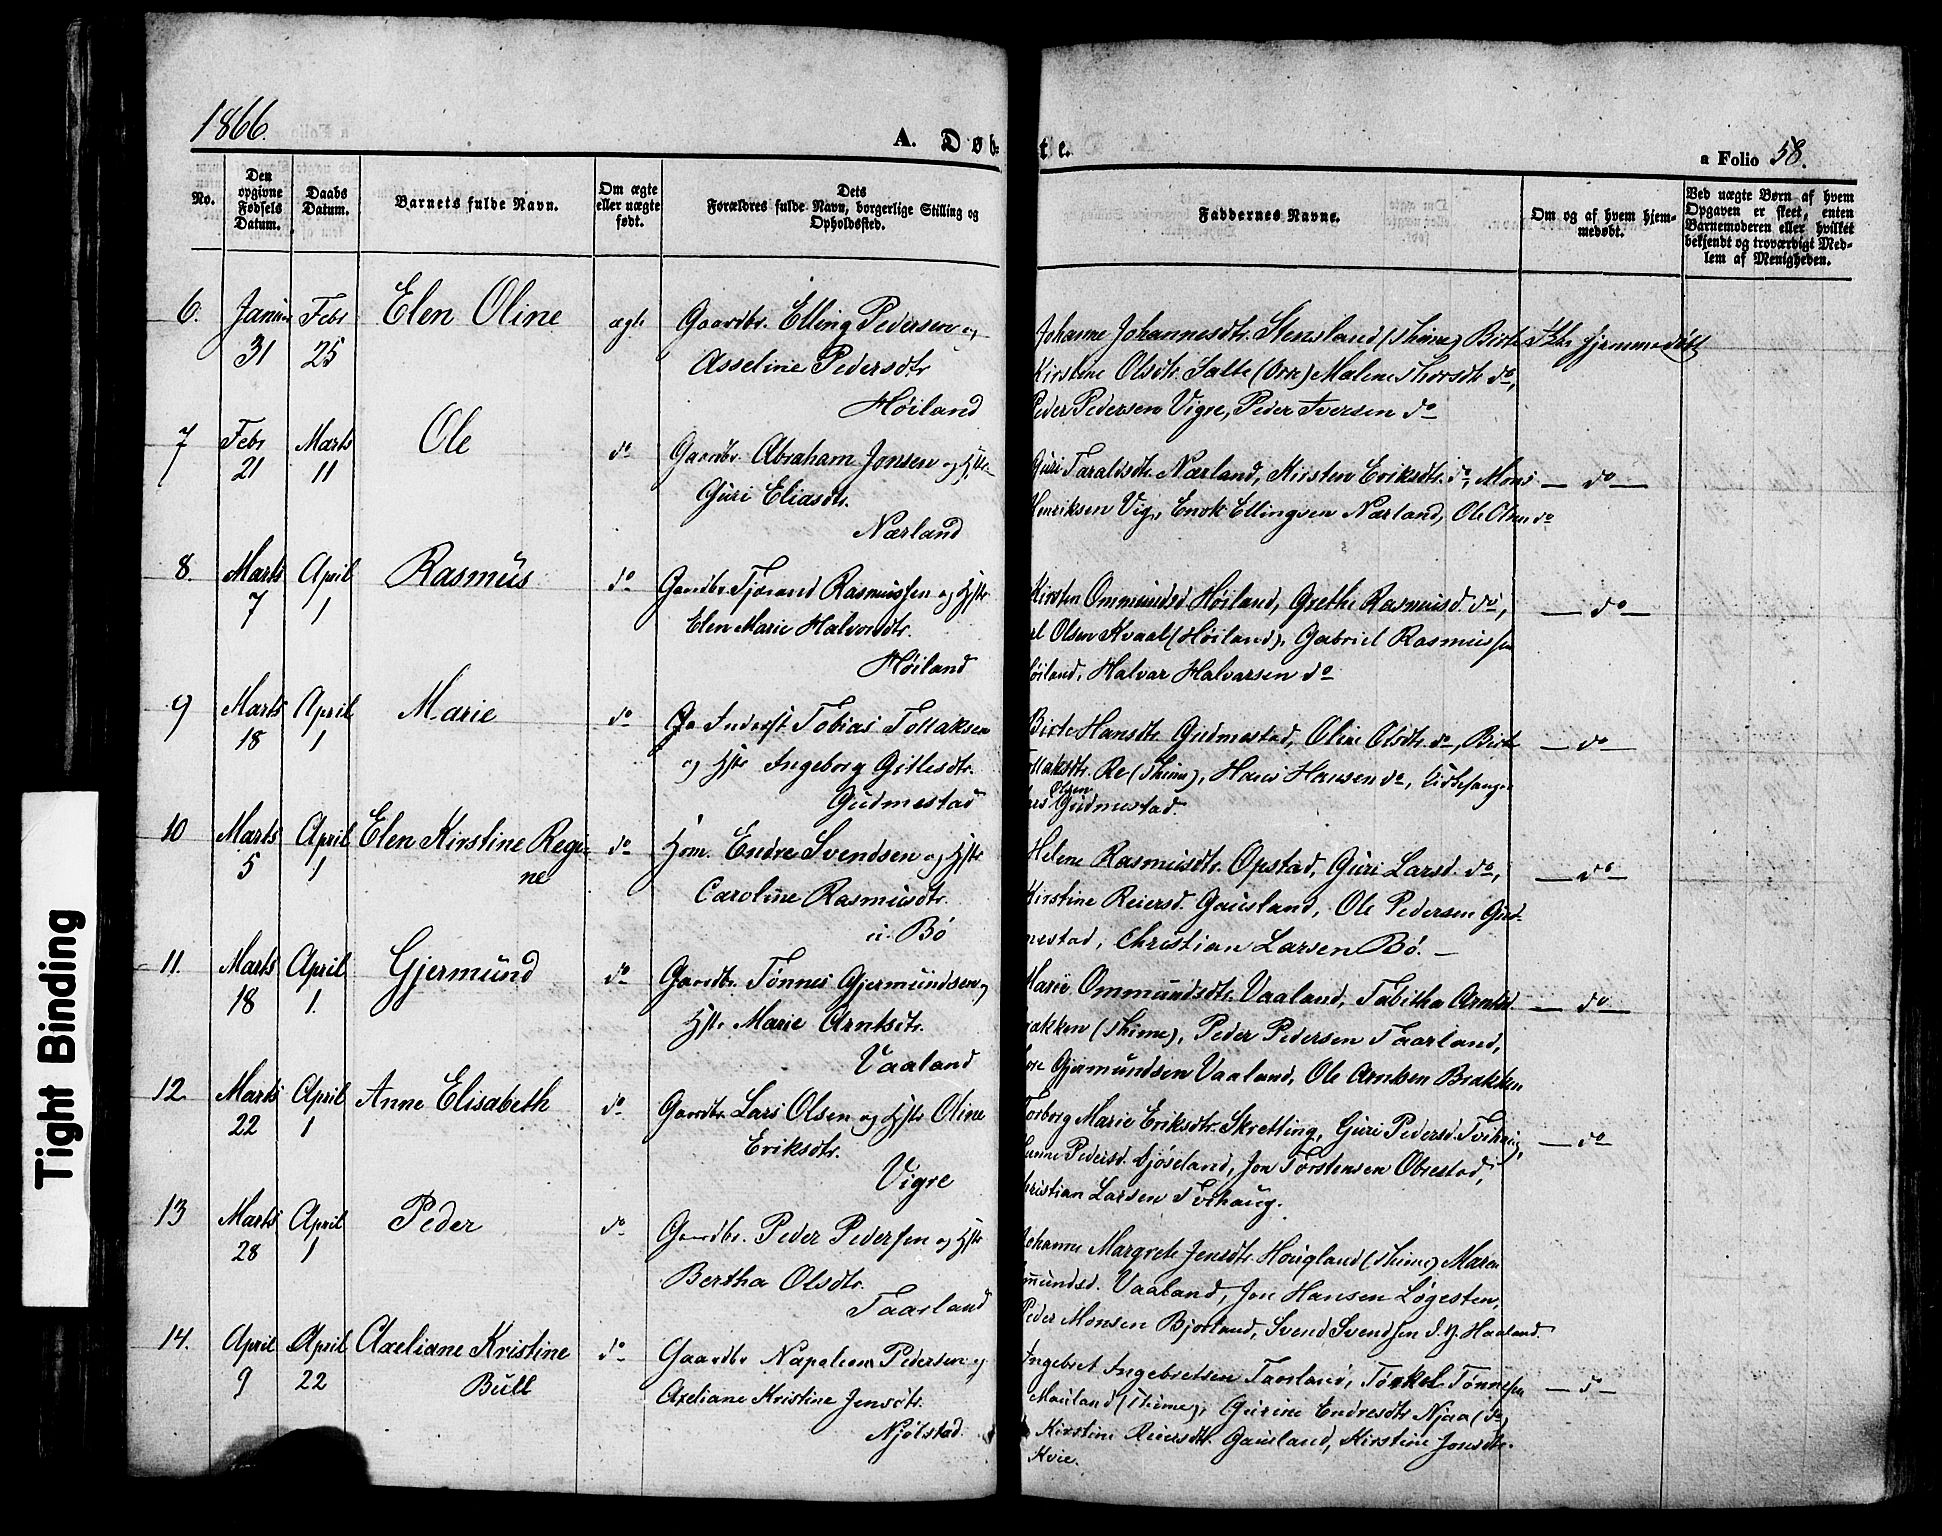 1866.
A. Døb-
te.
a Folio 58.
No.
Den opgivne Fødsels Datum.
Daabs Datum.
Barnets fulde Navn.
Om ægte eller uægte født.
Dets Forældres fulde Navn, borgerlige Stilling og Opholdssted.
Faddernes Navne.
Om og af hvem hjem-
medøbt.
Ved uægte Børn af hvem
Opgaven er skeet, enten
Barnemoderen eller hvilket
bekjendt og troværdigt Med-
lem af Menigheden.
6. Januar Febr Elen Oline ægte Gaardbr. Elling Pedersen og
31 25 Asseline Pedersdtr
Høiland
Johanne Johannesdtr. Stensland (Thime) Birte
Kirstine Olsdtr. Salte (Orre) Malene Thorsdtr do,
Peder Pedersen Vigre, Peder Iversen do
Ikke hjemmedøbt
7 Febr Marts Ole do Gaardbr. Abraham Jonsen og Hstr
21 11 Guri Eliasdtr.
Nærland
Guri Taraldsdtr. Nærland, Kirsten Eriksdtr. do, Mons
Henriksen Vig, Enok Ellingsen Nærland, Ole Olsen do
— do —
8. Marts April Rasmus do Gaardbr. Tjerand Rasmussen og Hstr
7 1 Elen Marie Halvorsdtr.
Høiland
Kirsten Ommundsd Høiland, Grethe Rasmusd. do,
Olsen Kvaal (Høiland), Gabriel Rasmussen
Høiland, Halvar Halvarsen do
— do —
9 Marts April Marie do Inderst Tobias Tollaksen
18 1 og Hstr Ingeborg Gitlesdtr.
Gudmestad
Birte Hansdtr Gudmestad, Oline Olsdtr. do, Birte
Tollaksdtr. Re (Thime), Hans Hansen do, Kirkesanger
Olsen
Gudmestad.
— do —
10 Marts April Elen Kirstine Regi- do Hsm. Endre Svendsen og Hstr
5 1 ne Caroline Rasmusdtr.
u. Bø
Helene Rasmusdtr. Opstad, Guri Larsd. do,
Kirstine Reiersd. Gausland, Ole Pedersen Gud-
mestad, Christian Larsen Bø. —
— do —
11. Marts April Gjermund do Gaardbr. Tønnes Gjermundsen og
18 1. Hstr Marie Arntsdtr.
Vaaland
Marie Ommundsdtr. Vaaland, Tabitha Arntsd.
Brakken (Thime), Peder Pedersen Taarland,
Gjermundsen Vaaland, Ole Arntsen Brakken
— do —
12. Marts April Anne Elisabeth do Gaardbr. Lars Olsen og Hstr Oline
22 1 Eriksdtr.
Vigre
Torborg Marie Eriksdtr. Skretting, Guri Pedersd. Tvihaug,
Pedersd. Djøseland, Jon Torstensen Obrestad,
Christian Larsen Tvihaug.
— do
13 Marts April Peder do Gaardbr. Peder Pedersen og Hstr
28 1 Bertha Olsdtr.
Taarland
Johanne Margrete Jensdtr. Hougland (Thime) Maren
Vaaland, Jon Hansen Løgesten,
Peder Monsen Bjorland, Svend Svendsen S. Y. Haaland.
14. April April Axeliane Kristine do Gaardbr Napoleon Pedersen og
9 22 Bull Axeliane Kristine Jensdtr.
Njølstad.
Ingebret Ingebretsen Taarland, Torkel Tønnesen
Mauland (Thime), Gurine Endresdtr Njaa (do)
Kirstine Reiersdtr. Gausland, Kirstine Jonsdtr.
Kvie.
— do —
Tight Binding